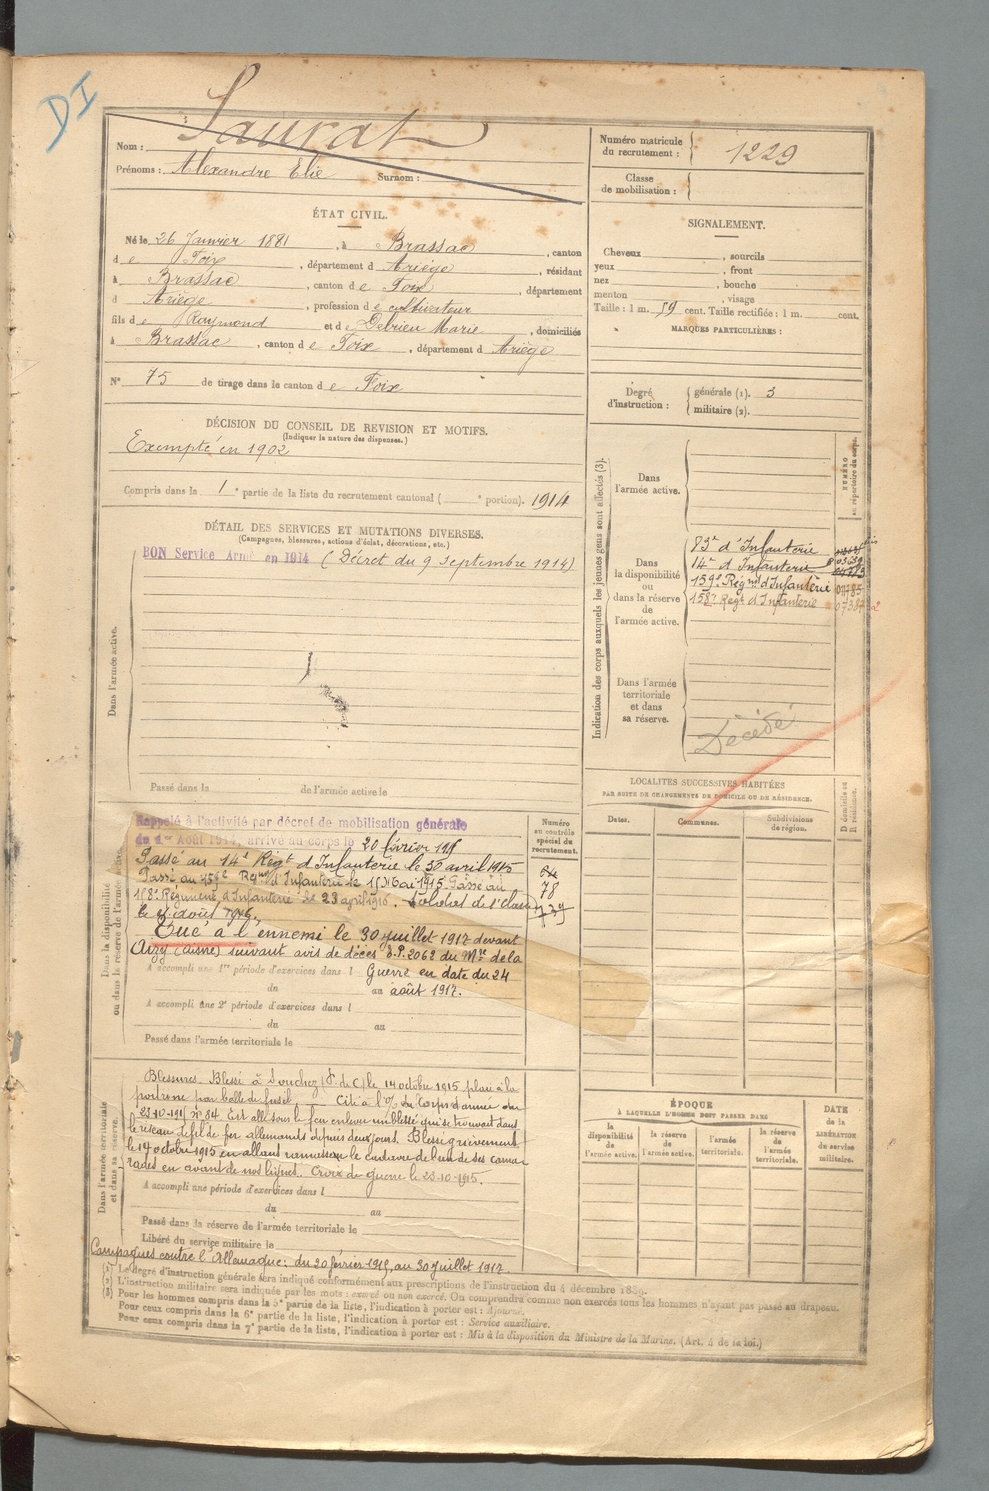 DI
Saurat
Nom :
Prénoms : Alexandre Elie Surnom :
Numéro matricule
du recrutement : 1229
Classe
de mobilisation :
ÉTAT CIVIL.
Né le 26 Janvier 1881, à Brassac, canton
d e Foix, département d Ariège, résidant
à Brassac, canton d e Foix, département
d Ariège, profession d e cultivateur
fils d e Raymond et d e Debrieu Marie, domiciliés
à Brassac, canton d e Foix, département d Ariège
N° 75 de tirage dans le canton d e Foix
SIGNALEMENT.
Cheveux , sourcils
yeux , front
nez , bouche
menton , visage
Taille : 1 m. 59 cent. Taille rectifiée : 1 m. cent.
MARQUES PARTICULIÈRES :
Degré
d'instruction :
générale (1). 3
militaire (2).
DÉCISION DU CONSEIL DE REVISION ET MOTIFS.
(Indiquer la nature des dispenses.)
Exempté en 1902
Compris dans la 1e partie de la liste du recrutement cantonal ( e portion). 1914
DÉTAIL DES SERVICES ET MUTATIONS DIVERSES.
(Campagnes, blessures, actions d'éclat, décorations, etc.)
Dans l'armée active.
BON Service Armé en 1914 (Décret du 9 Septembre 1914)
Passé dans la de l'armée active le
Indication des corps auxquels les jeunes gens sont affectés (3).
NUMÉRO
au répertoire du corps.
Dans
l'armée active.
Dans
la disponibilité
ou
dans la réserve
de
l'armée active.
83e d'Infanterie
14e d'Infanterie
159e Régnt d'Infanterie
158e Regt d'Infanterie
Dans l'armée
territoriale
et dans
sa réserve.
Décédé
LOCALITÉS SUCCESSIVES HABITÉES
PAR SUITE DE CHANGEMENTS DE DOMICILE OU DE RÉSIDENCE.
Dates.
Communes.
Subdivisions
de région.
D domicile ou
R résidence.
Dans la disponibilité
ou dans la réserve de l'armée active.
Numéro
au contrôle
spécial du
recrutement.
78
Rappelé à l'activité par décret de mobilisation générale
du 1er Août 1914, arrivé au corps le 20 février 1915
Passé au 14e Régt d'Infanterie le 30 avril 1915
Passé au 159e Regnt d'Infanterie le 15 Mai 1915 Passé au
158e Régiment d'Infanterie le 23 avril 1916. Soldat de 1e classe
Tué à l'ennemi le 30 juillet 1917 devant
Aizy (Aisne) suivant avis de décès S.P. 2062 du Mre de la
A accompli une 1re période d'exercices dans l Guerre en date du 24
du au août 1917.
A accompli une 2e période d'exercices dans l
du au
Passé dans l'armée territoriale le
Dans l'armée territoriale
et dans sa réserve.
Blessures. Blessé à Souchez (P. de C) le 14 octobre 1915 plaie à la
poitrine par balle de fusil. Cité à l'O/ du Corps d'armée du
23-10-1915 N° 84. Est allé sous le feu enlever un blessé qui se trouvait dans
le réseau de fil de fer allemands depuis deux jours. Blessé grièvement
le 14 octobre 1915 en allant ramasser le cadavre de l'un de ses cama
rades en avant de nos lignes. Croix de guerre le 23-10-1915.
A accompli une période d'exercices dans l
du au
Passé dans la réserve de l'armée territoriale le
Libéré du service militaire le
Campagnes contre l'Allemagne : du 20 février 1915 au 30 juillet 1917.
ÉPOQUE
À LAQUELLE L'HOMME DOIT PASSER DANS
la
disponibilité
de
l'armée active.
la réserve
de
l'armée active.
l'armée
territoriale.
la réserve
de
l'armée
territoriale.
DATE
de la
LIBÉRATION
du service
militaire.
(1) Le degré d'instruction générale sera indiqué conformément aux prescriptions de l'instruction du 4 décembre 1889.
(2) L'instruction militaire sera indiquée par les mots : exercé ou non exercé. On comprendra comme non exercés tous les hommes n'ayant pas passé au drapeau.
(3) Pour les hommes compris dans la 5e partie de la liste, l'indication à porter est : Ajourné.
Pour ceux compris dans la 6e partie de la liste, l'indication à porter est : Service auxiliaire.
Pour ceux compris dans la 7e partie de la liste, l'indication à porter est : Mis à la disposition du Ministre de la Marine. (Art. 4 de la loi.)